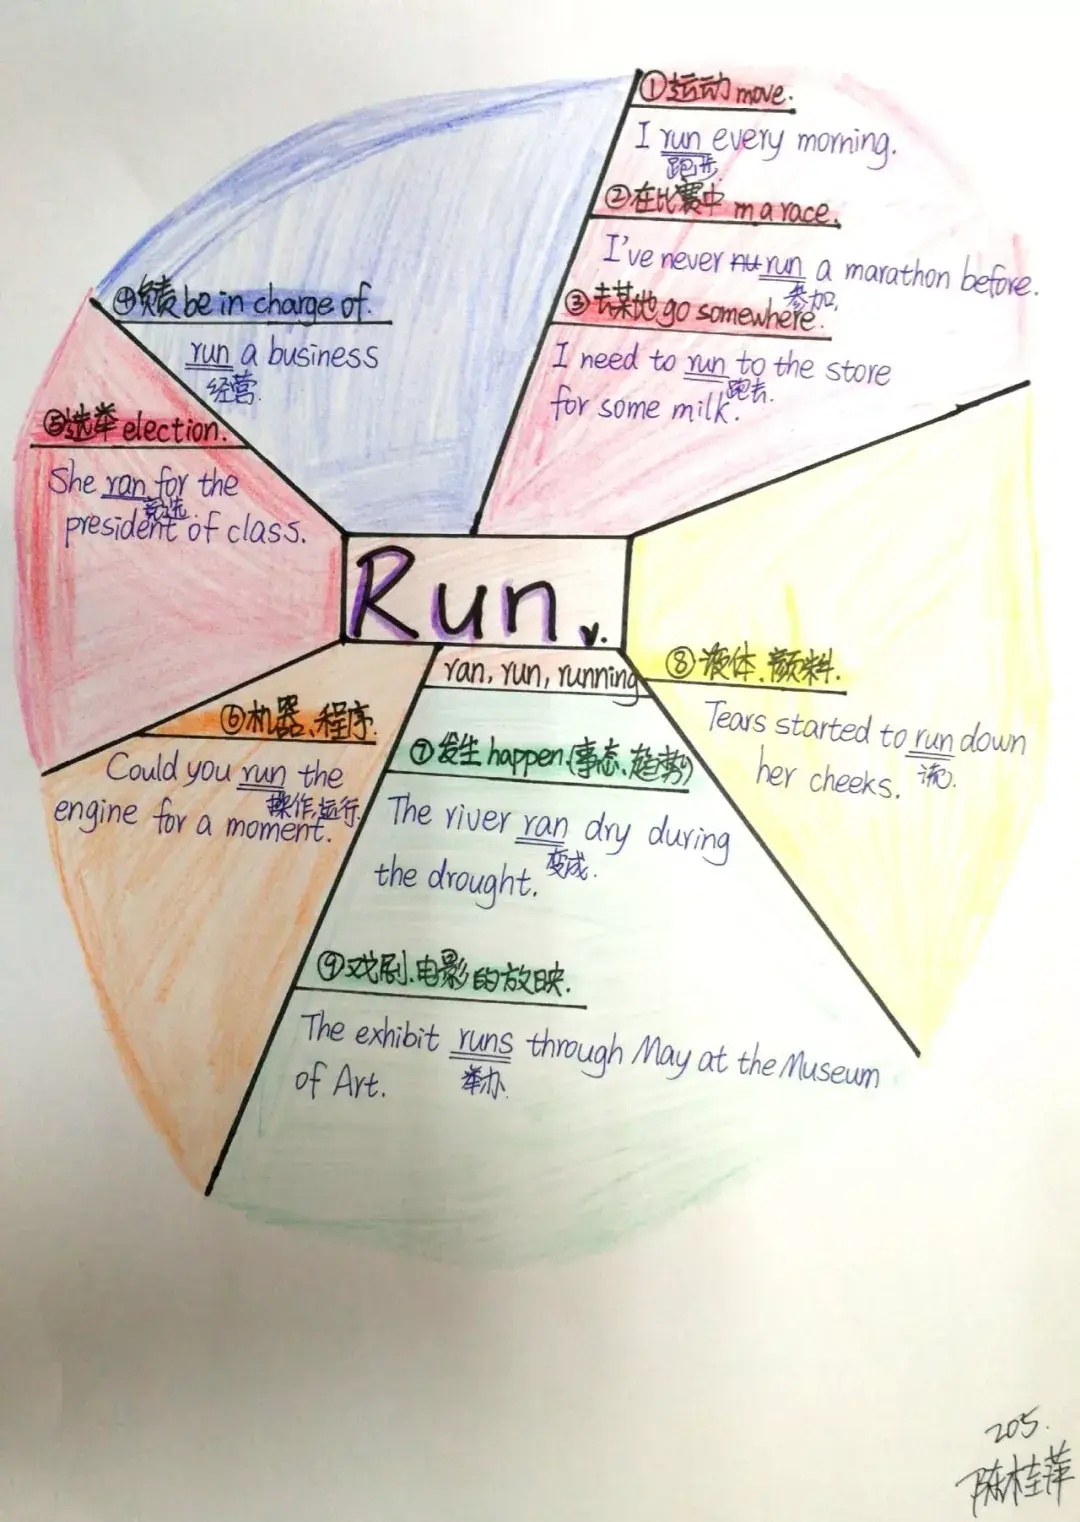 ①运动 move.
I run every morning.
跑步
②在比赛中 in a race.
I've never run a marathon before.
参加.
③去某地 go somewhere.
I need to run to the store
跑去.
for some milk.
④负责 be in charge of.
run a business
经营.
⑤选举 election.
She ran for the
竞选.
president of class.
Run v.
ran, run, running
⑥机器、程序.
Could you run the
操作,运行.
engine for a moment.
⑦发生 happen (事态、趋势)
The river ran dry during
变成.
the drought.
⑧液体、颜料.
Tears started to run down
流.
her cheeks.
⑨戏剧、电影的放映.
The exhibit runs through May at the Museum
举办.
of Art.
205.
陈桂萍